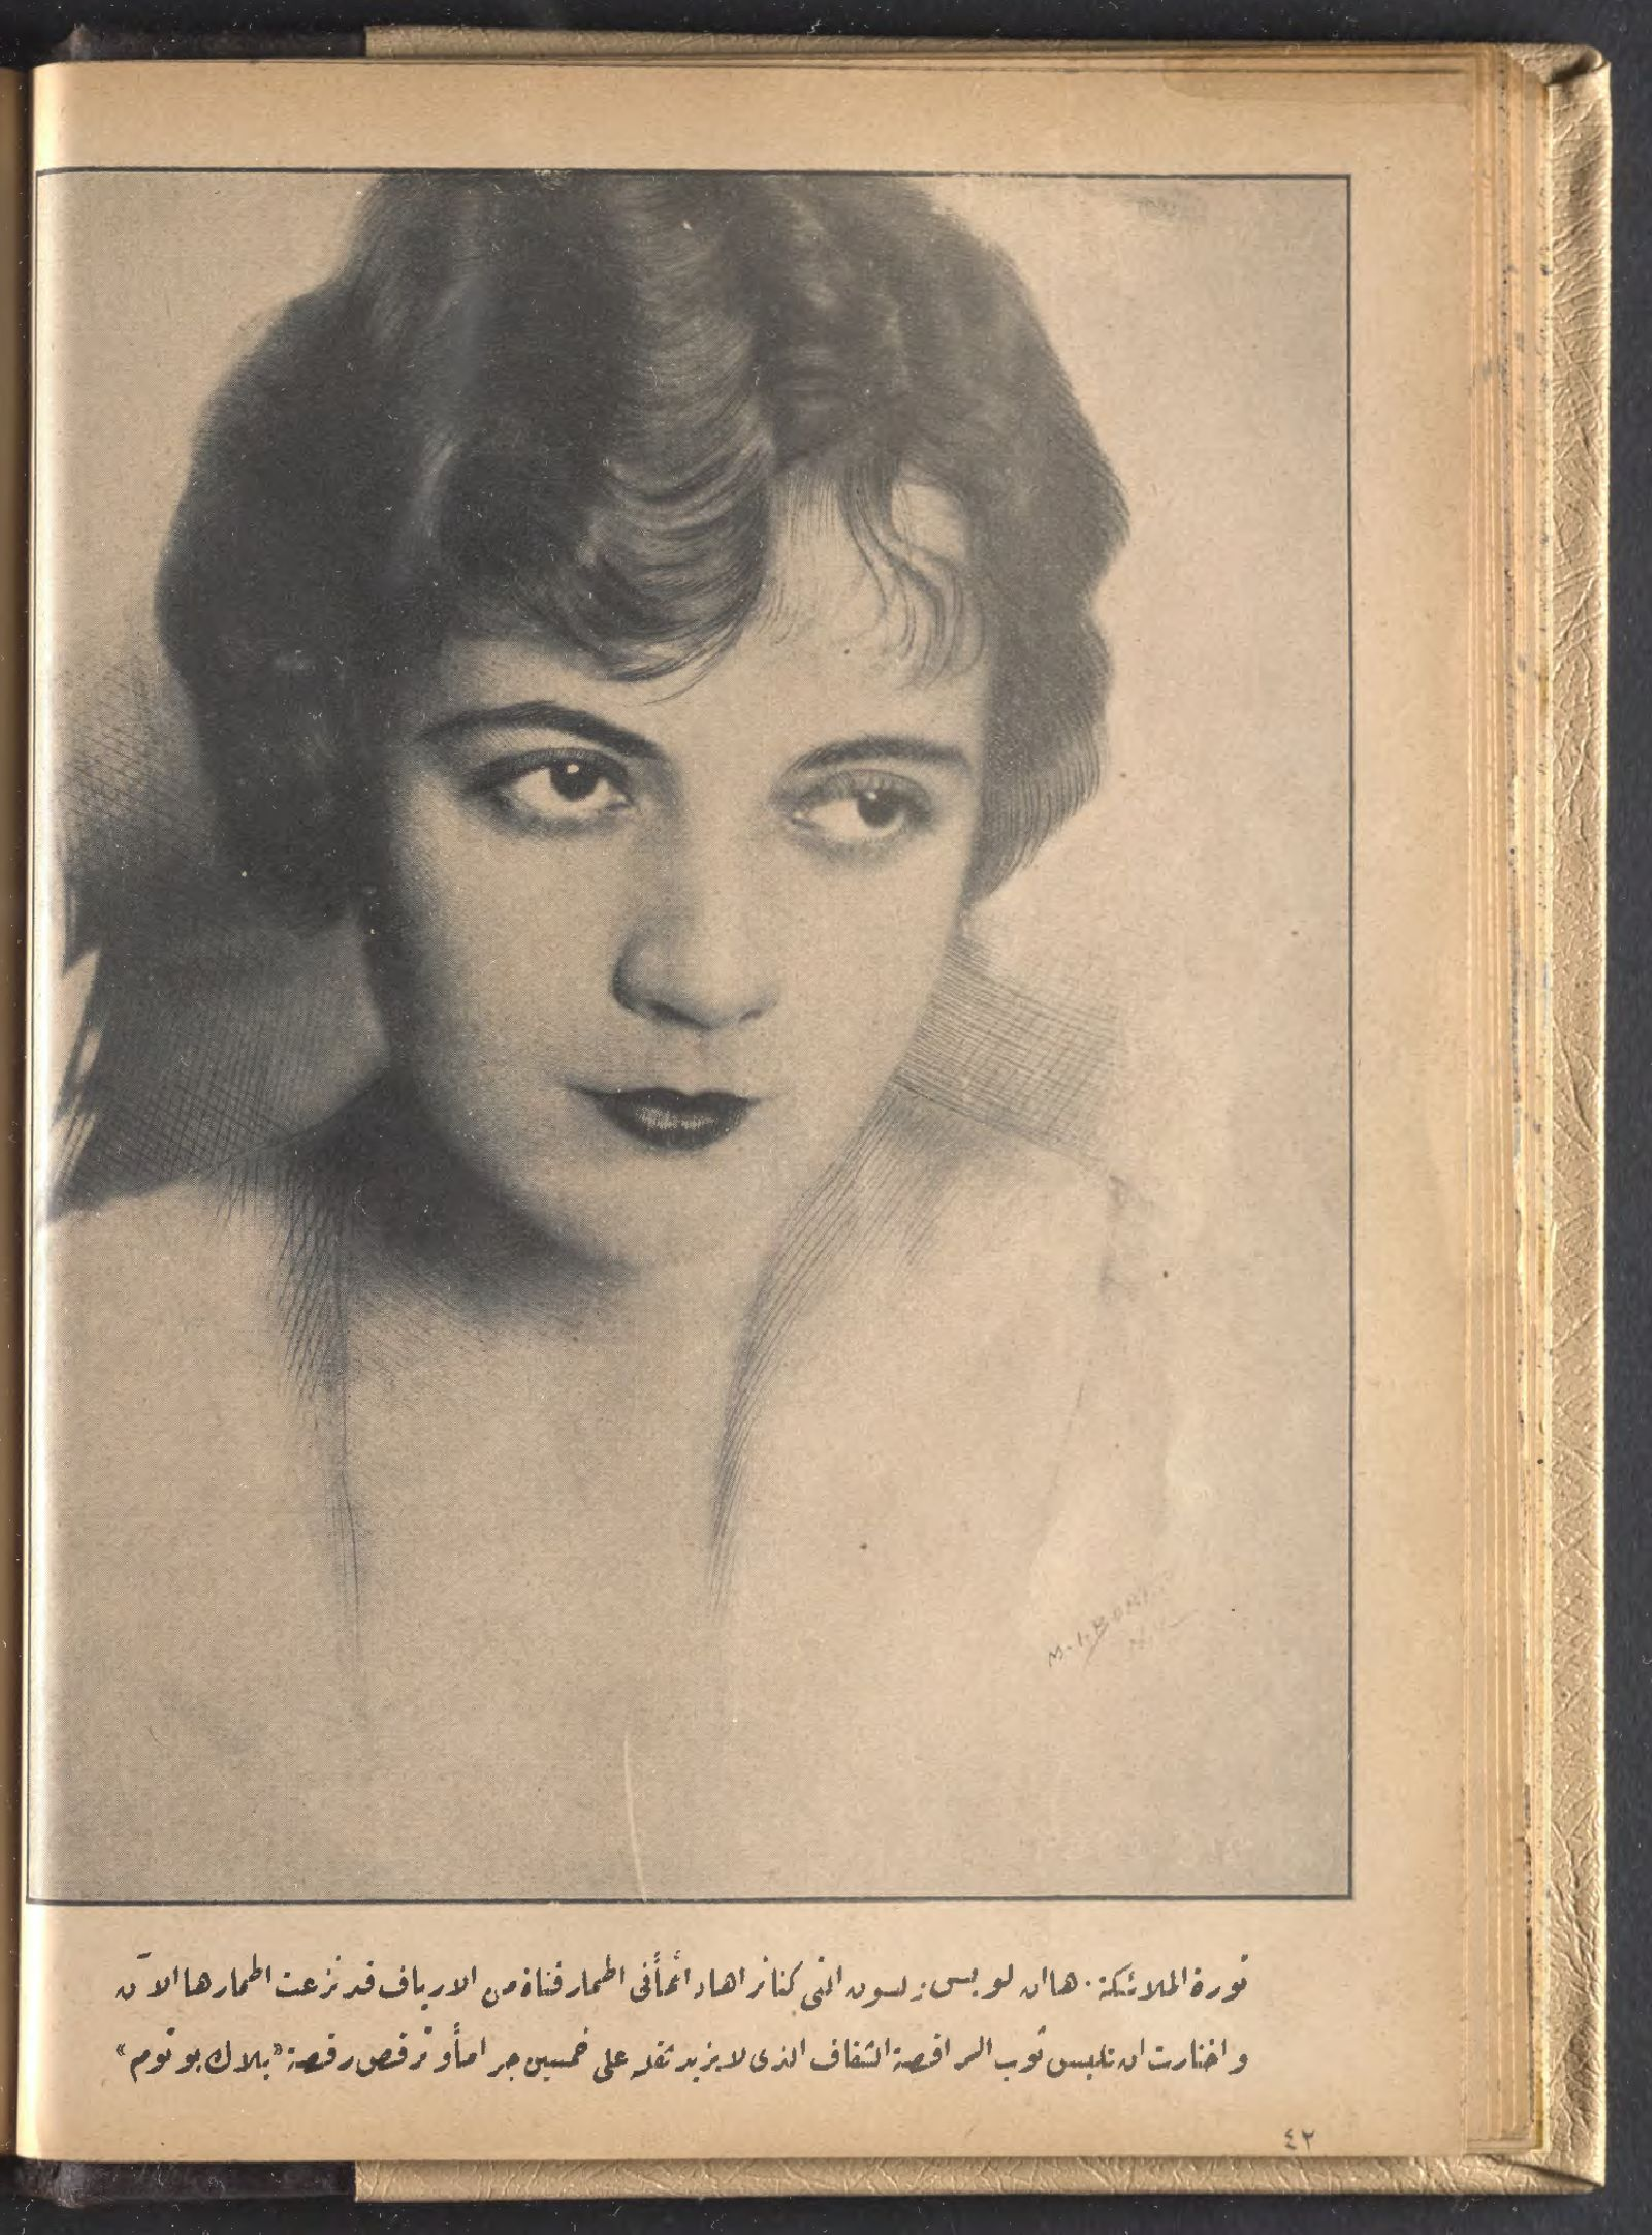 M. I. BORIS
N.Y.
ثورة الملائكة. ها ان لويس زلسون التى كنا نراها دائماً فى اطمار فتاة من الارياف قد نزعت اطمارها الآن
واختارت ان تلبس ثوب الراقصة الشفاف الذى لا يزيد ثقله على خمسين جراماً وترقص رقصة «بلاك بوتوم»
٤٢